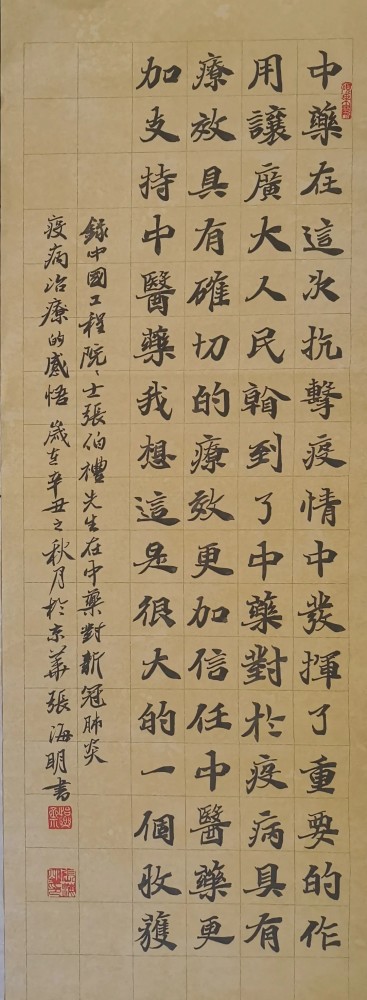 中藥在這次抗擊疫情中發揮了重要的作
用讓廣大人民看到了中藥對於疫病具有
療效具有確切的療效更加信任中醫藥更
加支持中醫藥我想這是很大的一個收穫
錄中國工程院、士張伯禮先生在中藥對新冠肺炎
疫病治療的感悟 歲在辛丑之秋月於京華張海明書